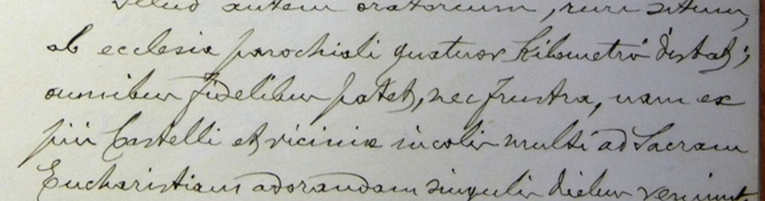 Illud autem oratorium, ruri situm,
ab ecclesia parochiali quatuor Kilometris distat;
omnibus fidelibus patet, nec frustra, nam ex
piis Castelli et viciniæ incolis multi ad Sacram
Eucharistiam adorandam singulis diebus veniunt.